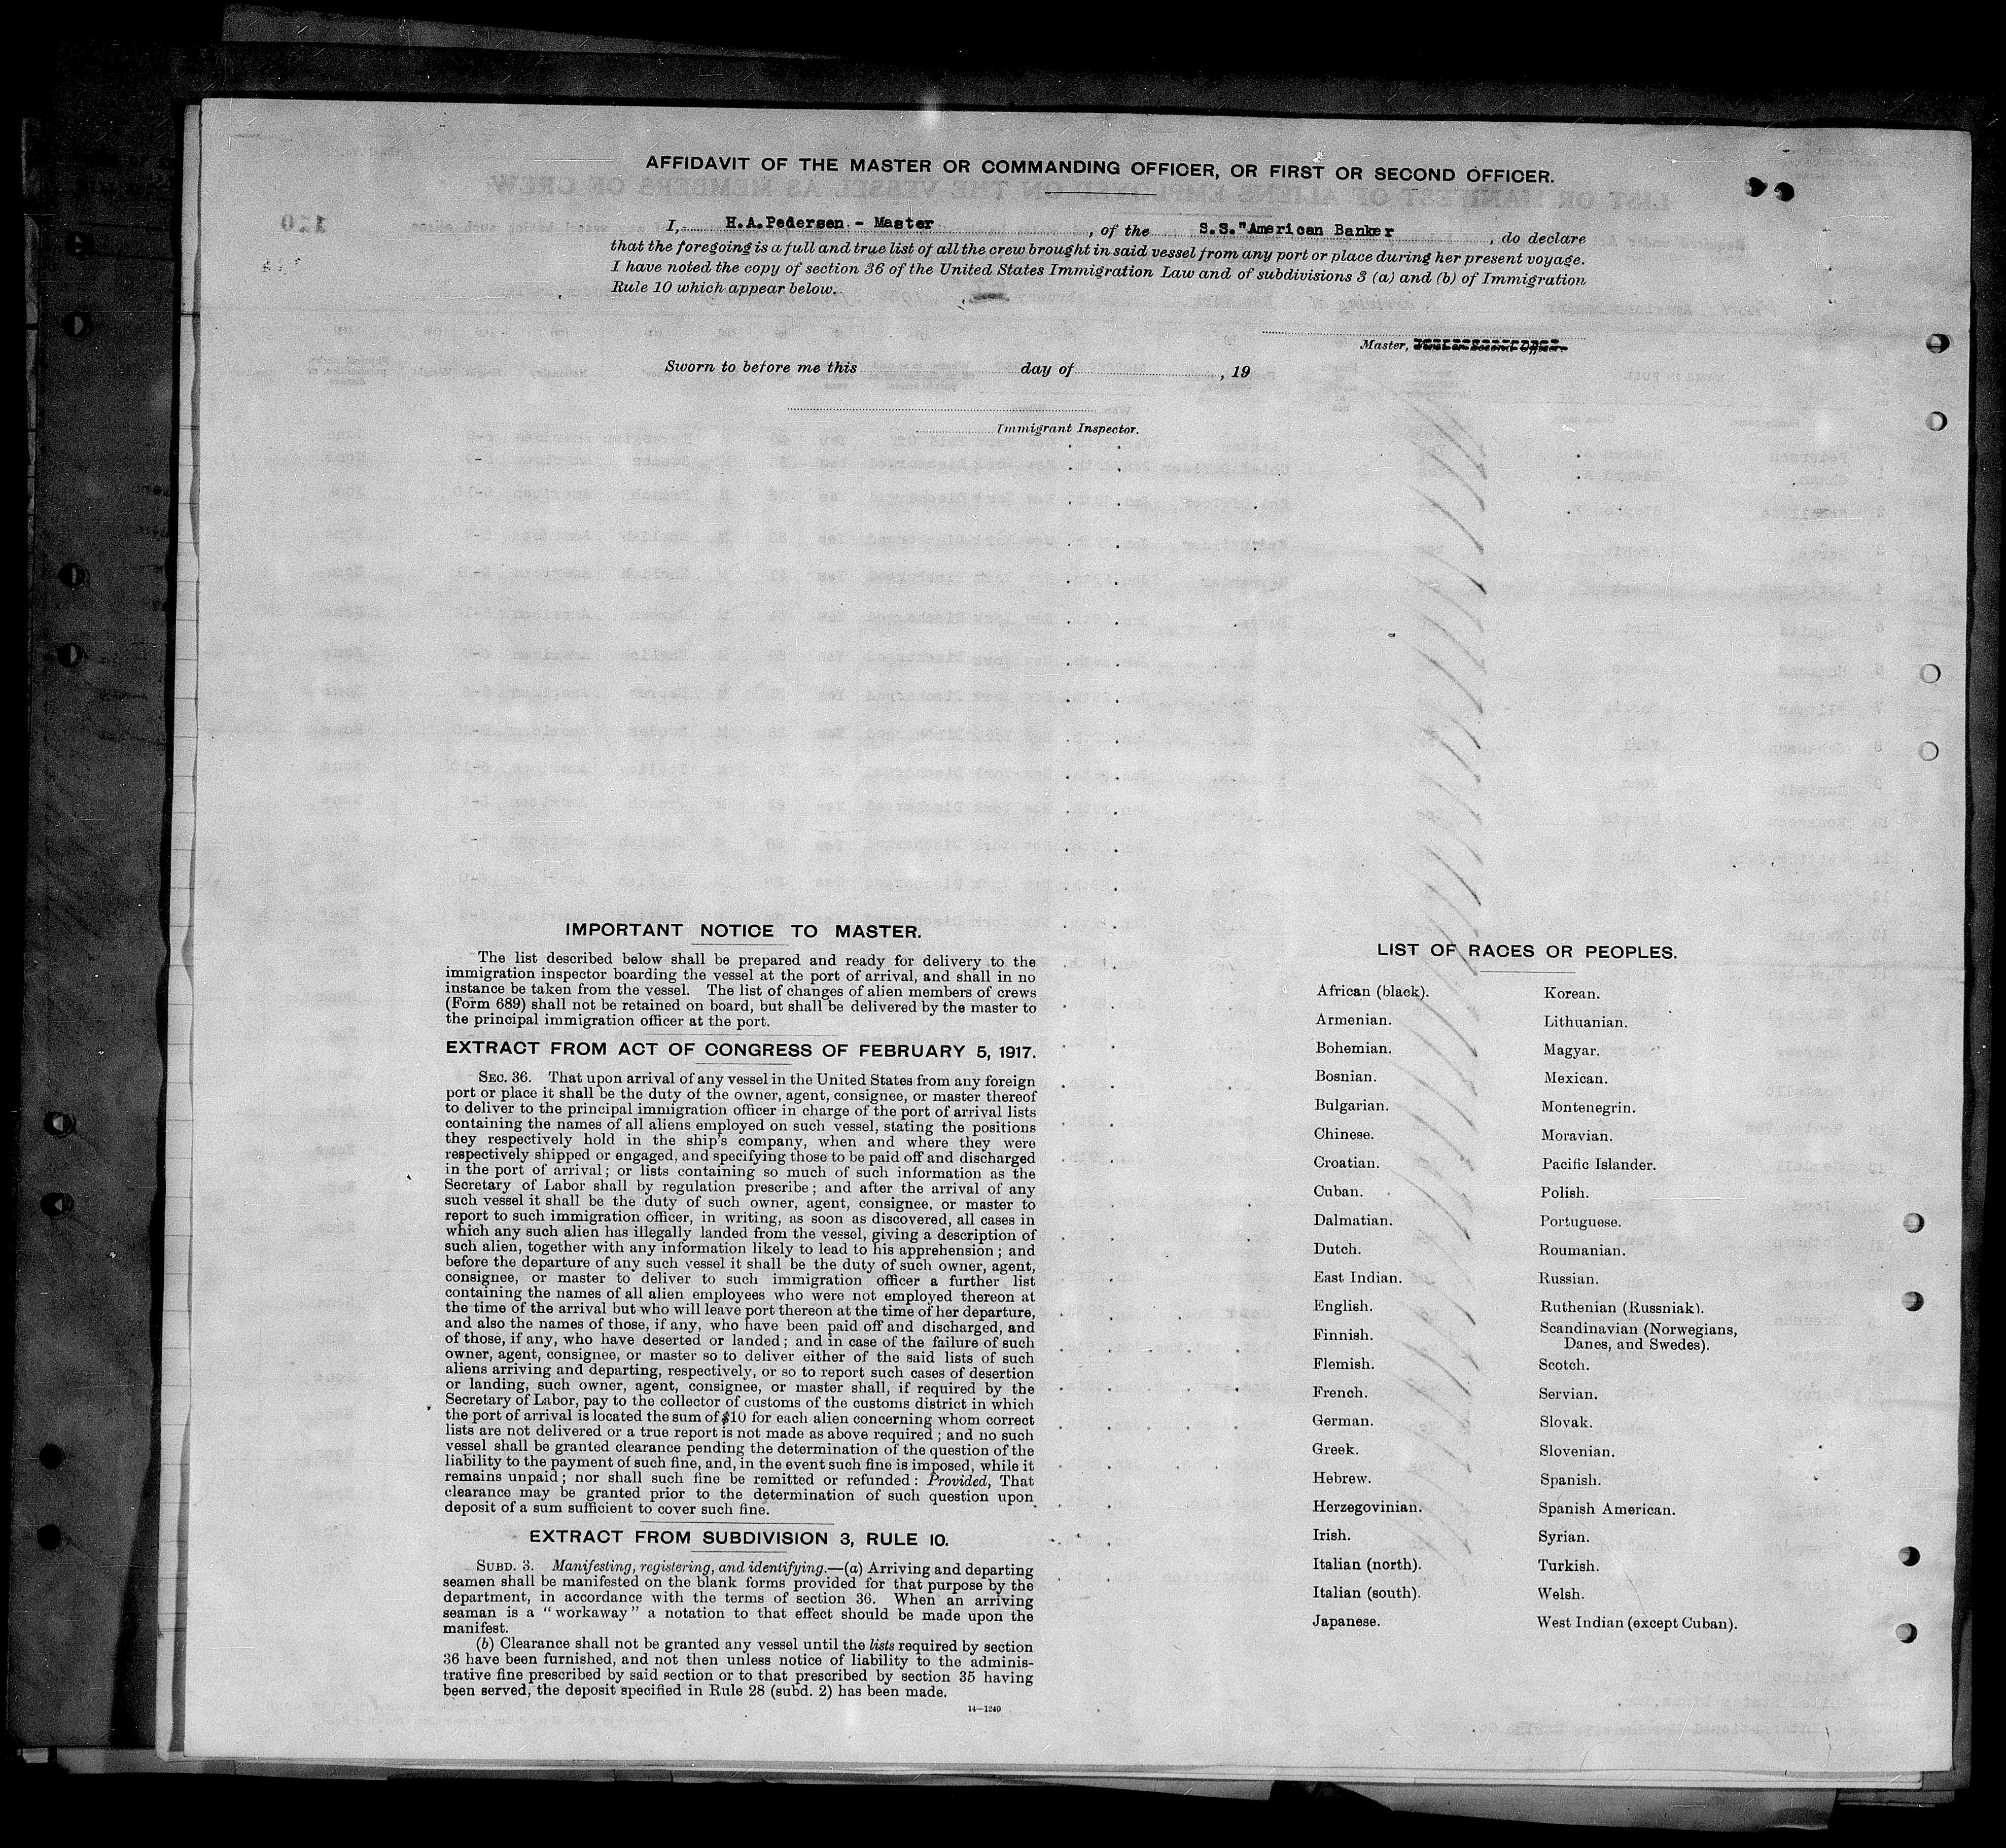 AFFIDAVIT OF THE MASTER OR COMMANDING OFFICER, OR FIRST OR SECOND OFFICER.
I, H.A.Pedersen - Master, of the S.S."American Banker, do declare
that the foregoing is a full and true list of all the crew brought in said vessel from any port or place during her present voyage.
I have noted the copy of section 36 of the United States Immigration Law and of subdivisions 3 (a) and (b) of Immigration
Rule 10 which appear below.
Master, First or Second Officer.
Sworn to before me this day of , 19
Immigrant Inspector.
IMPORTANT NOTICE TO MASTER.
The list described below shall be prepared and ready for delivery to the
immigration inspector boarding the vessel at the port of arrival, and shall in no
instance be taken from the vessel. The list of changes of alien members of crews
(Form 689) shall not be retained on board, but shall be delivered by the master to
the principal immigration officer at the port.
EXTRACT FROM ACT OF CONGRESS OF FEBRUARY 5, 1917.
SEC. 36. That upon arrival of any vessel in the United States from any foreign
port or place it shall be the duty of the owner, agent, consignee, or master thereof
to deliver to the principal immigration officer in charge of the port of arrival lists
containing the names of all aliens employed on such vessel, stating the positions
they respectively hold in the ship's company, when and where they were
respectively shipped or engaged, and specifying those to be paid off and discharged
in the port of arrival; or lists containing so much of such information as the
Secretary of Labor shall by regulation prescribe; and after the arrival of any
such vessel it shall be the duty of such owner, agent, consignee, or master to
report to such immigration officer, in writing, as soon as discovered, all cases in
which any such alien has illegally landed from the vessel, giving a description of
such alien, together with any information likely to lead to his apprehension; and
before the departure of any such vessel it shall be the duty of such owner, agent,
consignee, or master to deliver to such immigration officer a further list
containing the names of all alien employees who were not employed thereon at
the time of the arrival but who will leave port thereon at the time of her departure,
and also the names of those, if any, who have been paid off and discharged, and
of those, if any, who have deserted or landed; and in case of the failure of such
owner, agent, consignee, or master so to deliver either of the said lists of such
aliens arriving and departing, respectively, or so to report such cases of desertion
or landing, such owner, agent, consignee, or master shall, if required by the
Secretary of Labor, pay to the collector of customs of the customs district in which
the port of arrival is located the sum of $10 for each alien concerning whom correct
lists are not delivered or a true report is not made as above required; and no such
vessel shall be granted clearance pending the determination of the question of the
liability to the payment of such fine, and, in the event such fine is imposed, while it
remains unpaid; nor shall such fine be remitted or refunded: Provided, That
clearance may be granted prior to the determination of such question upon
deposit of a sum sufficient to cover such fine.
EXTRACT FROM SUBDIVISION 3, RULE 10.
SUBD. 3. Manifesting, registering, and identifying.—(a) Arriving and departing
seamen shall be manifested on the blank forms provided for that purpose by the
department, in accordance with the terms of section 36. When an arriving
seaman is a "workaway" a notation to that effect should be made upon the
manifest.
(b) Clearance shall not be granted any vessel until the lists required by section
36 have been furnished, and not then unless notice of liability to the adminis-
trative fine prescribed by said section or to that prescribed by section 35 having
been served, the deposit specified in Rule 28 (subd. 2) has been made.
14—1240
LIST OF RACES OR PEOPLES.
African (black).
Armenian.
Bohemian.
Bosnian.
Bulgarian.
Chinese.
Croatian.
Cuban.
Dalmatian.
Dutch.
East Indian.
English.
Finnish.
Flemish.
French.
German.
Greek.
Hebrew.
Herzegovinian.
Irish.
Italian (north).
Italian (south).
Japanese.
Korean.
Lithuanian.
Magyar.
Mexican.
Montenegrin.
Moravian.
Pacific Islander.
Polish.
Portuguese.
Roumanian.
Russian.
Ruthenian (Russniak).
Scandinavian (Norwegians,
Danes, and Swedes).
Scotch.
Servian.
Slovak.
Slovenian.
Spanish.
Spanish American.
Syrian.
Turkish.
Welsh.
West Indian (except Cuban).